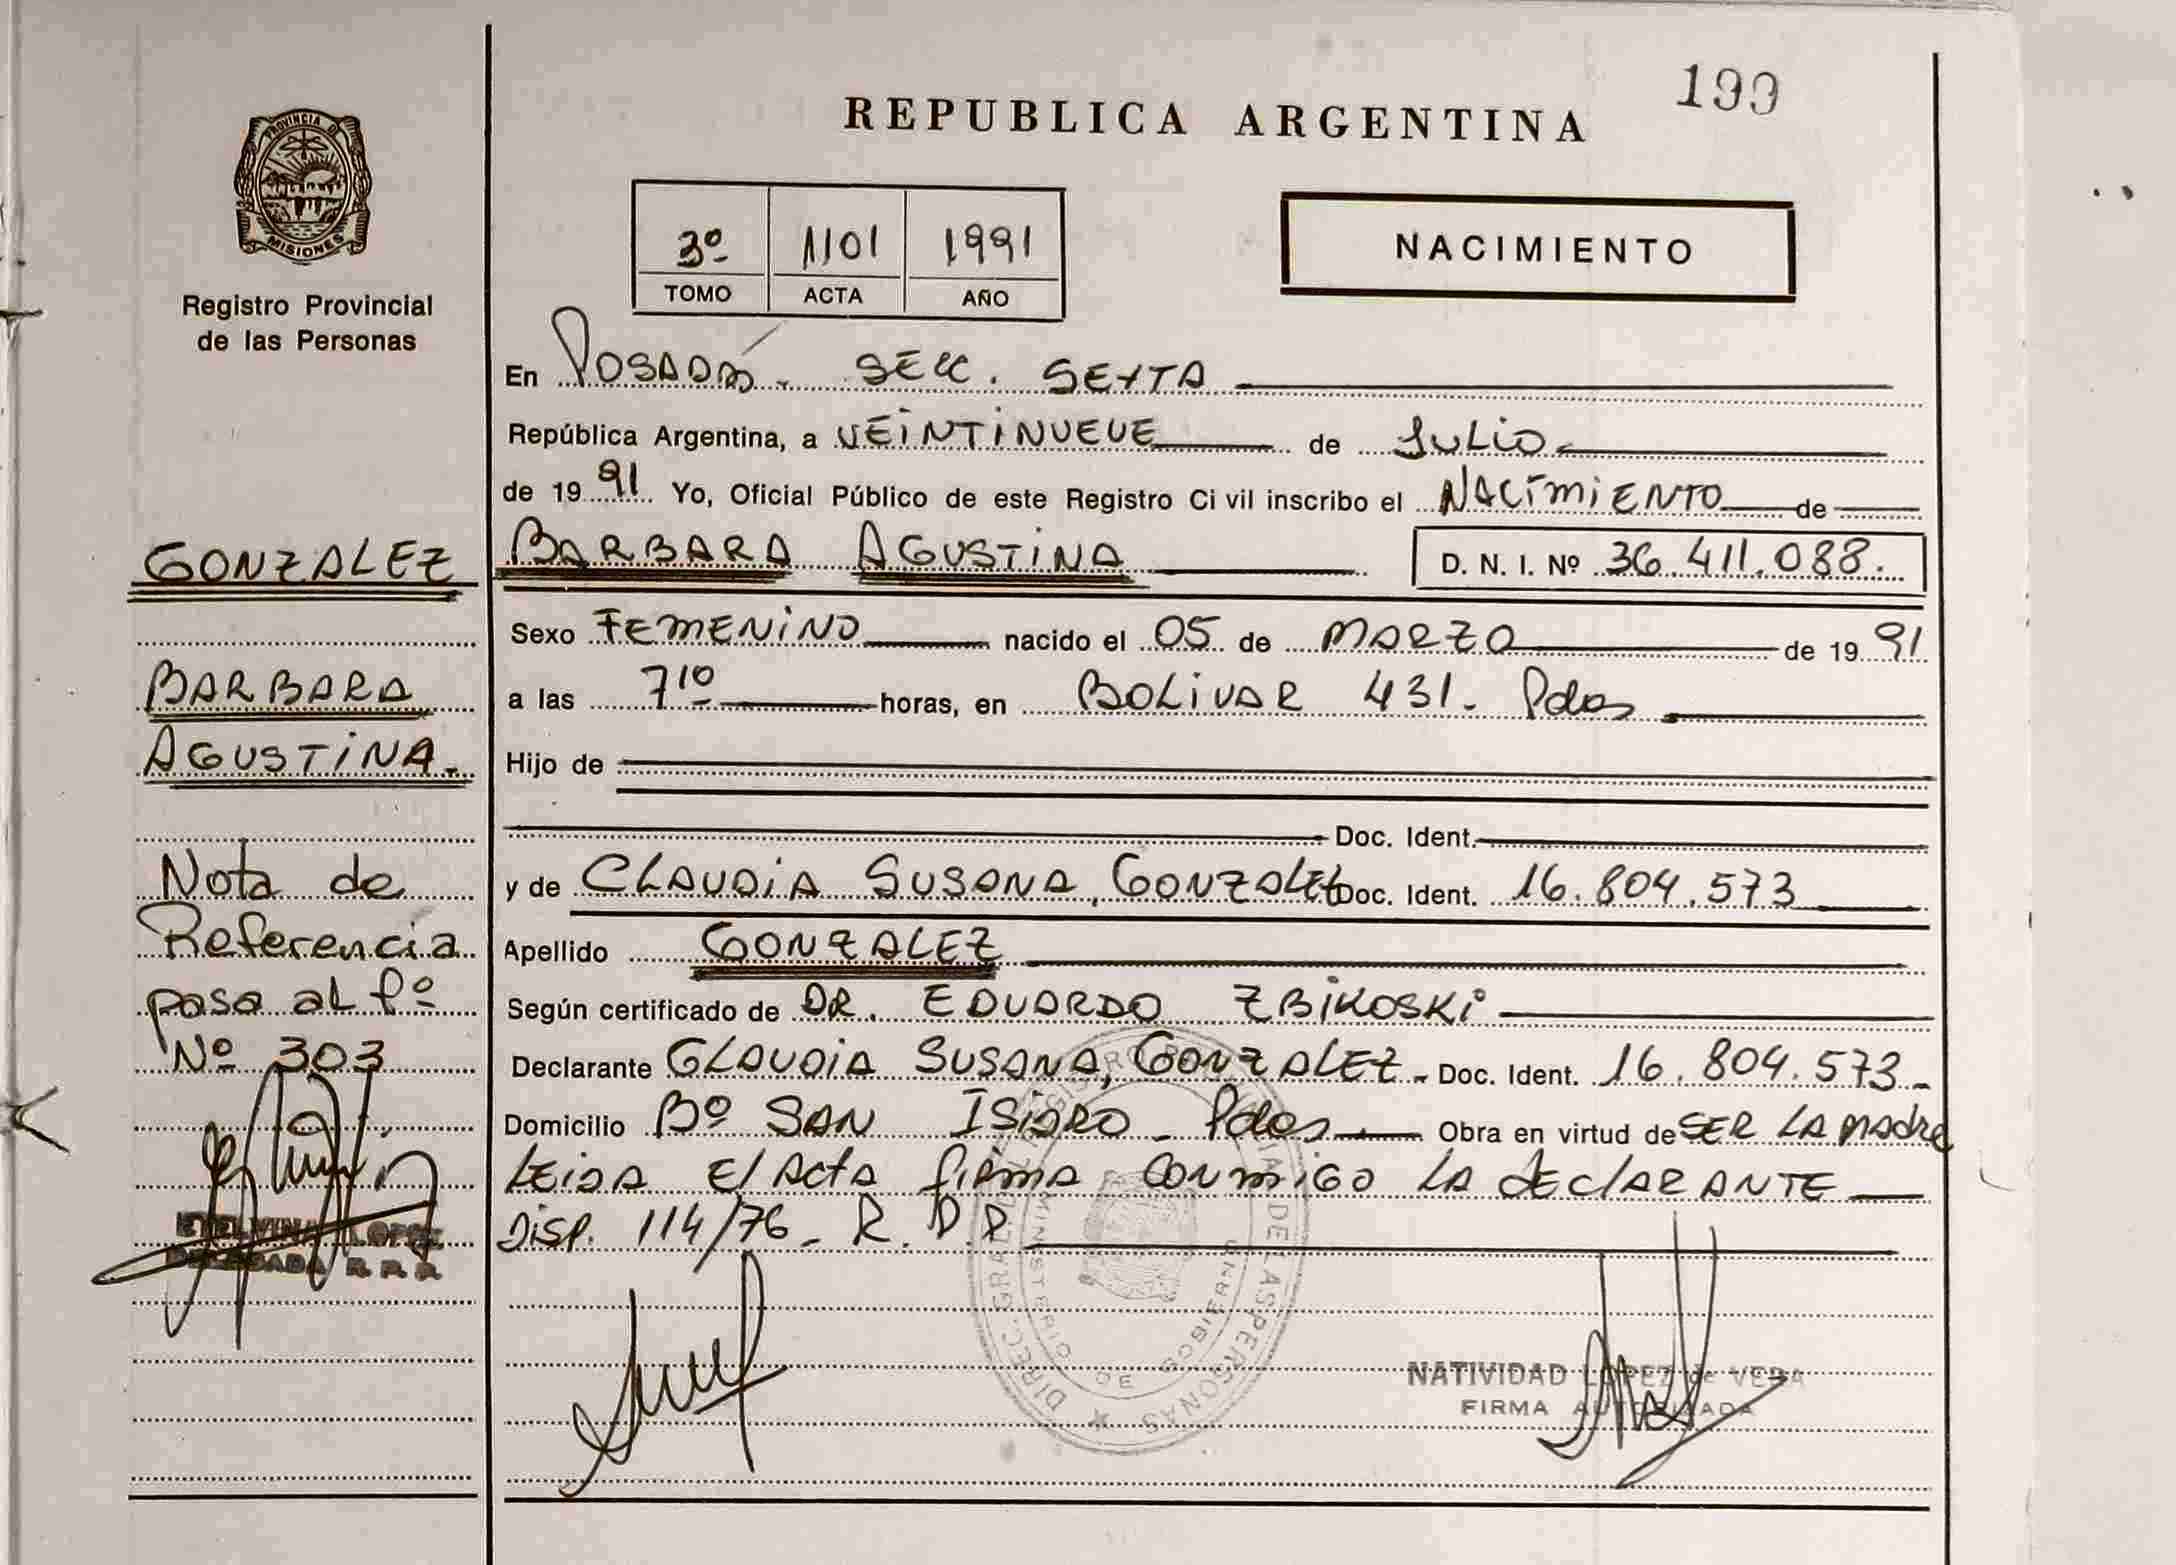 199
REPUBLICA ARGENTINA
PROVINCIA DE
MISIONES
Registro Provincial
de las Personas
3º 1101 1991
TOMO ACTA AÑO
NACIMIENTO
En Posadas. SECC. SEXTA
República Argentina, a VEINTINUEVE de JULIO
de 1991 Yo, Oficial Público de este Registro Ci vil inscribo el NACIMIENTO de
BARBARA AGUSTINA D. N. I. Nº 36.411.088.
Sexo FEMENINO nacido el 05 de MARZO de 1991
a las 710 horas, en BOLIVAR 431. Pdas
Hijo de
Doc. Ident.
y de CLAUDIA SUSANA, GONZALEZ Doc. Ident. 16.804.573
Apellido GONZALEZ
Según certificado de DR. EDUARDO ZBIKOSKI
Declarante CLAUDIA SUSANA, GONZALEZ - Doc. Ident. 16.804.573-
Domicilio Bº SAN ISIDRO - Pdas Obra en virtud de SER LA MADRE
LEIDA El Acta firma CONMIGO LA DEClARANTE
DISP. 114/76- R.P.P.
GONZALEZ
BARBARA
AGUSTINA.
Nota de
Referencia
pasa al fº
Nº 303
EDELVINA LOPEZ
DELEGADA R. P. P.
NATIVIDAD LOPEZ de VERA
FIRMA AUTORIZADA